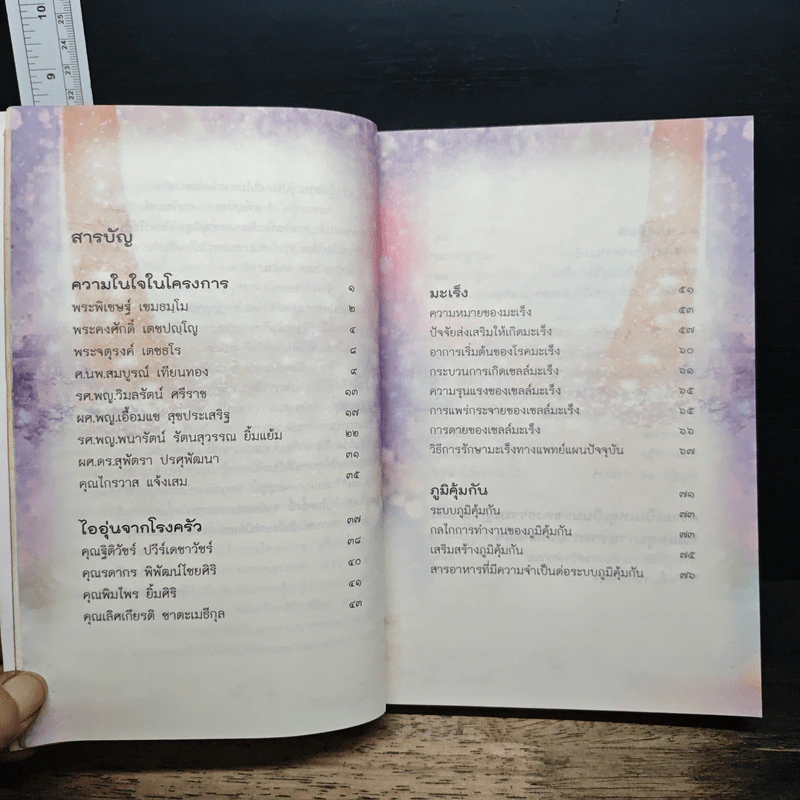 10
9
25
24
23
22
สารบัญ
ความในใจในโครงการ ๑
พระพิเชษฐ์ เขมธมฺโม ๒
พระคงศักดิ์ เตชปญฺโญ ๔
พระจตุรงค์ เตชธโร ๘
ศ.นพ.สมบูรณ์ เทียนทอง ๙
รศ.พญ.วิมลรัตน์ ศรีราช ๑๓
ผศ.พญ.เอื้อมแข สุขประเสริฐ ๑๗
รศ.พญ.พนารัตน์ รัตนสุวรรณ ยิ้มแย้ม ๒๒
ผศ.ดร.สุพัตรา ปรศุพัฒนา ๓๑
คุณไกรวาส แจ้งเสม ๓๕
ไออุ่นจากโรงครัว ๓๗
คุณฐิติวัชร์ ปวีร์เดชาวัชร์ ๓๘
คุณรดากร พิพัฒน์ไชยศิริ ๔๐
คุณพิมไพร ยิ้มศิริ ๔๑
คุณเลิศเกียรติ ชาตะเมธีกุล ๔๓
มะเร็ง ๕๑
ความหมายของมะเร็ง ๕๓
ปัจจัยส่งเสริมให้เกิดมะเร็ง ๕๗
อาการเริ่มต้นของโรคมะเร็ง ๖๐
กระบวนการเกิดเซลล์มะเร็ง ๖๑
ความรุนแรงของเซลล์มะเร็ง ๖๕
การแพร่กระจายของเซลล์มะเร็ง ๖๕
การตายของเซลล์มะเร็ง ๖๖
วิธีการรักษามะเร็งทางแพทย์แผนปัจจุบัน ๖๗
ภูมิคุ้มกัน ๗๑
ระบบภูมิคุ้มกัน ๗๓
กลไกการทำงานของภูมิคุ้มกัน ๗๓
เสริมสร้างภูมิคุ้มกัน ๗๕
สารอาหารที่มีความจำเป็นต่อระบบภูมิคุ้มกัน ๗๖